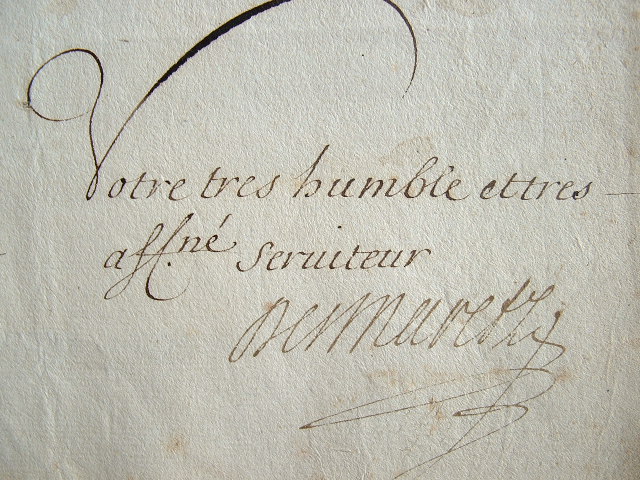 Votre tres humble et tres
aff.né Seruiteur
Desmaretz